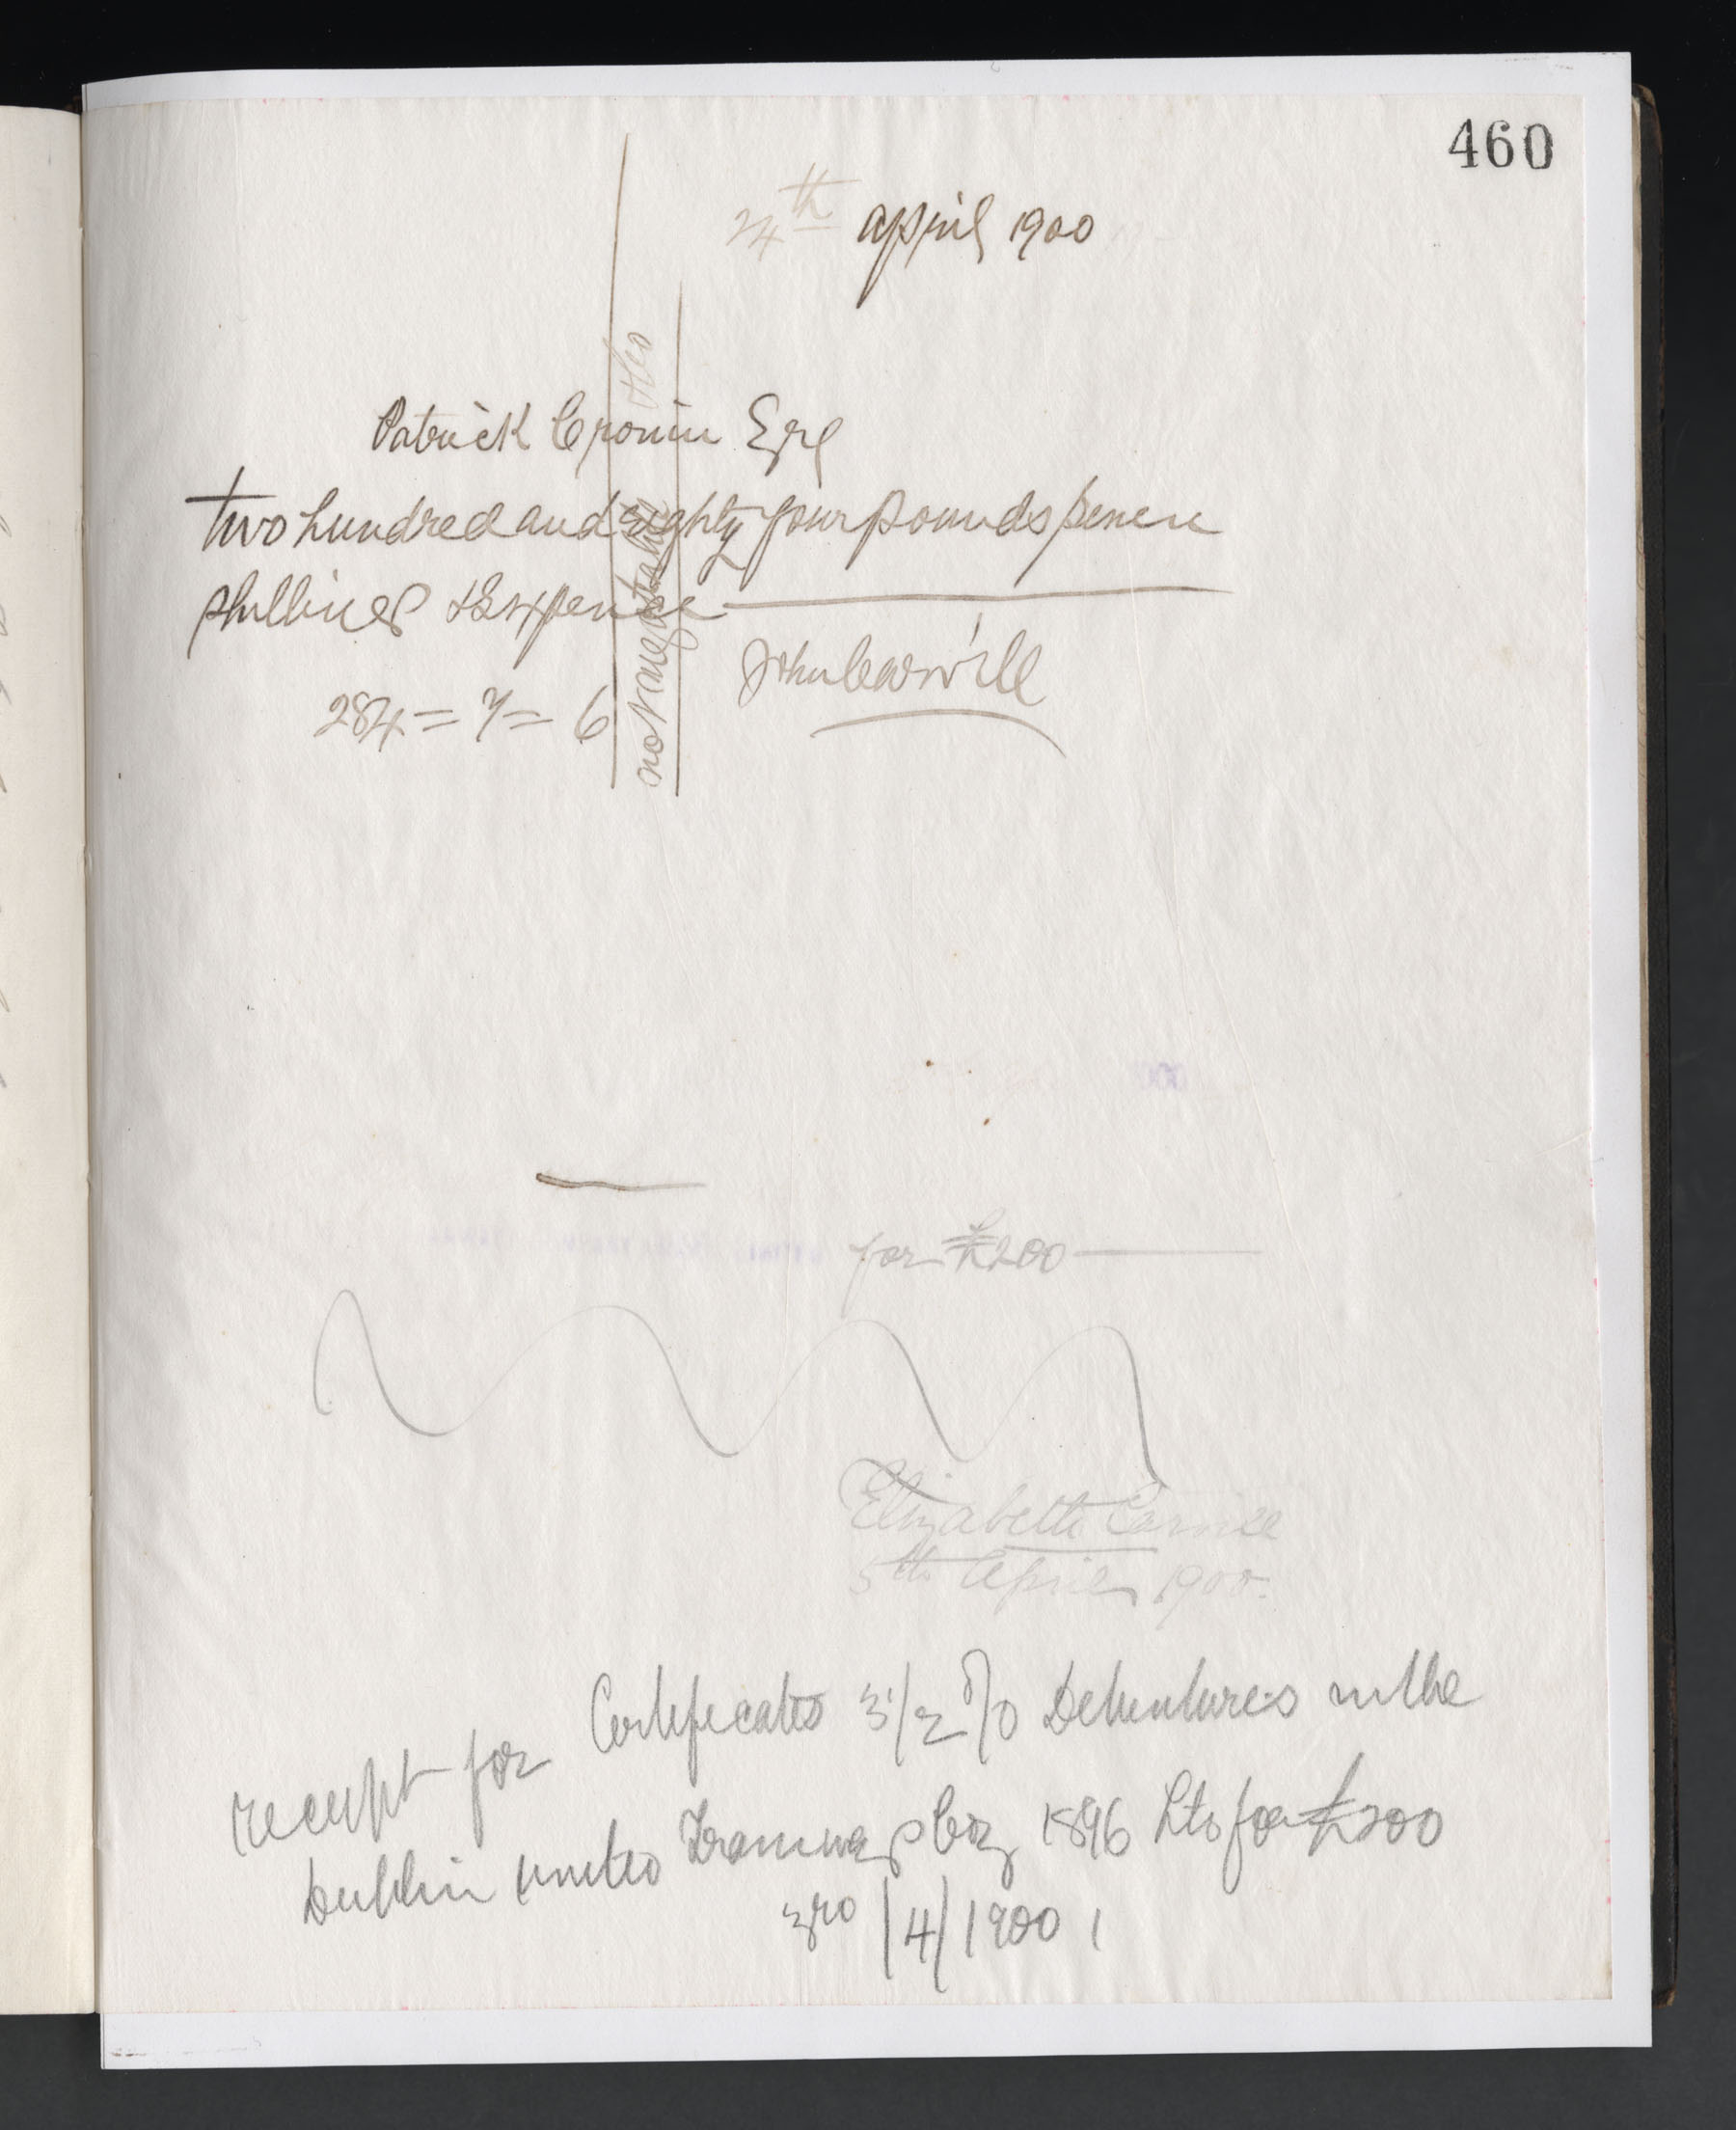 460
24th april 1900
Patrick Cronin Esq
two hundred and eighty four pounds seven
shillings & Sixpence
284 = 7 = 6
John Carvill
not negotiable
for £200
Elizabeth Carvill
5th April 1900.
receipt for Certificates 3 1/2 % Debentures in the
Dublin United Tramways Coy 1896 Ltd for £200
3rd /4/1900